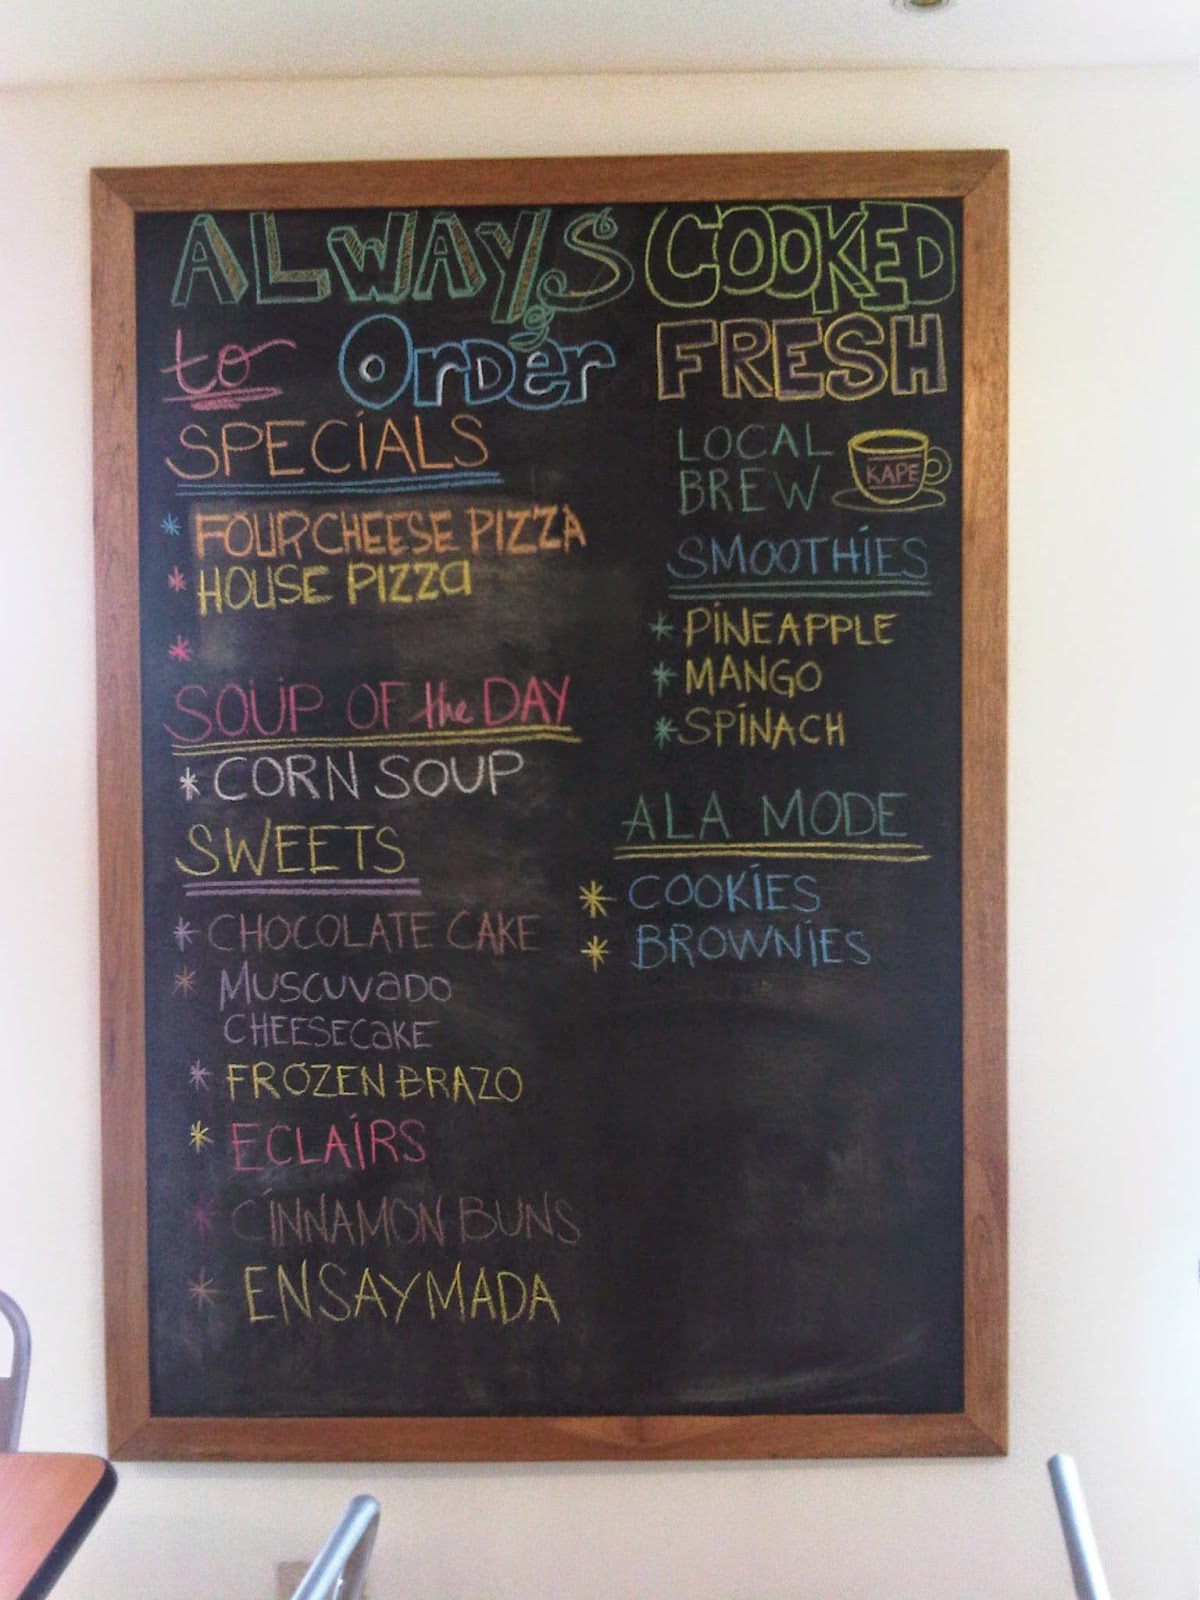 ALWAYS COOKED
to Order FRESH
SPECIALS
* FOUR CHEESE PIZZA
* HOUSE PIZZA
*
SOUP OF the DAY
* CORN SOUP
SWEETS
* CHOCOLATE CAKE
* MUSCUVADO
CHEESECAKE
* FROZEN BRAZO
* ECLAIRS
* CINNAMON BUNS
* ENSAYMADA
LOCAL
BREW
KAPE
SMOOTHIES
* PINEAPPLE
* MANGO
* SPINACH
ALA MODE
* COOKIES
* BROWNIES